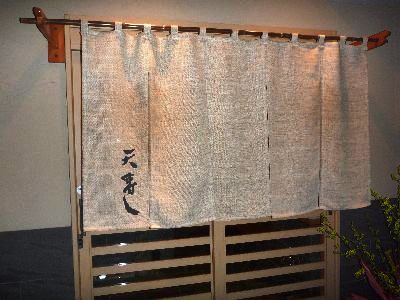 天寿し